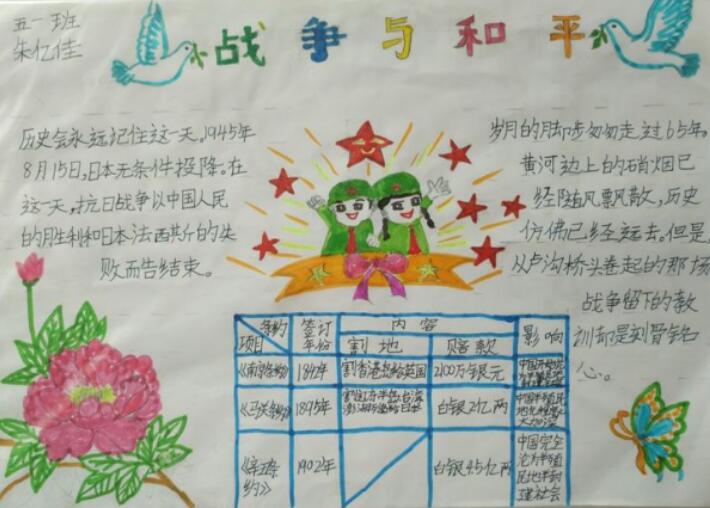 五一班
朱亿佳
战争与和平
历史会永远记住这一天。1945年
8月15日,日本无条件投降。在
这一天,抗日战争以中国人民
的胜利和日本法西斯的失
败而告结束。
岁月的脚步匆匆走过65年。
黄河边上的硝烟已
经随风飘散,历史
仿佛已经远去。但是,
从卢沟桥头卷起的那场
战争留下的教
训却是刻骨铭
心。
条约
项目
签订
年份
内容
影响
割地
赔款
《南京条约》
1842年
割香港岛给英国
2100万银元
《马关条约》
1895年
白银2亿两
《辛丑条
约》
1902年
白银4.5亿两
中国完全
沦为半殖
民地半封
建社会